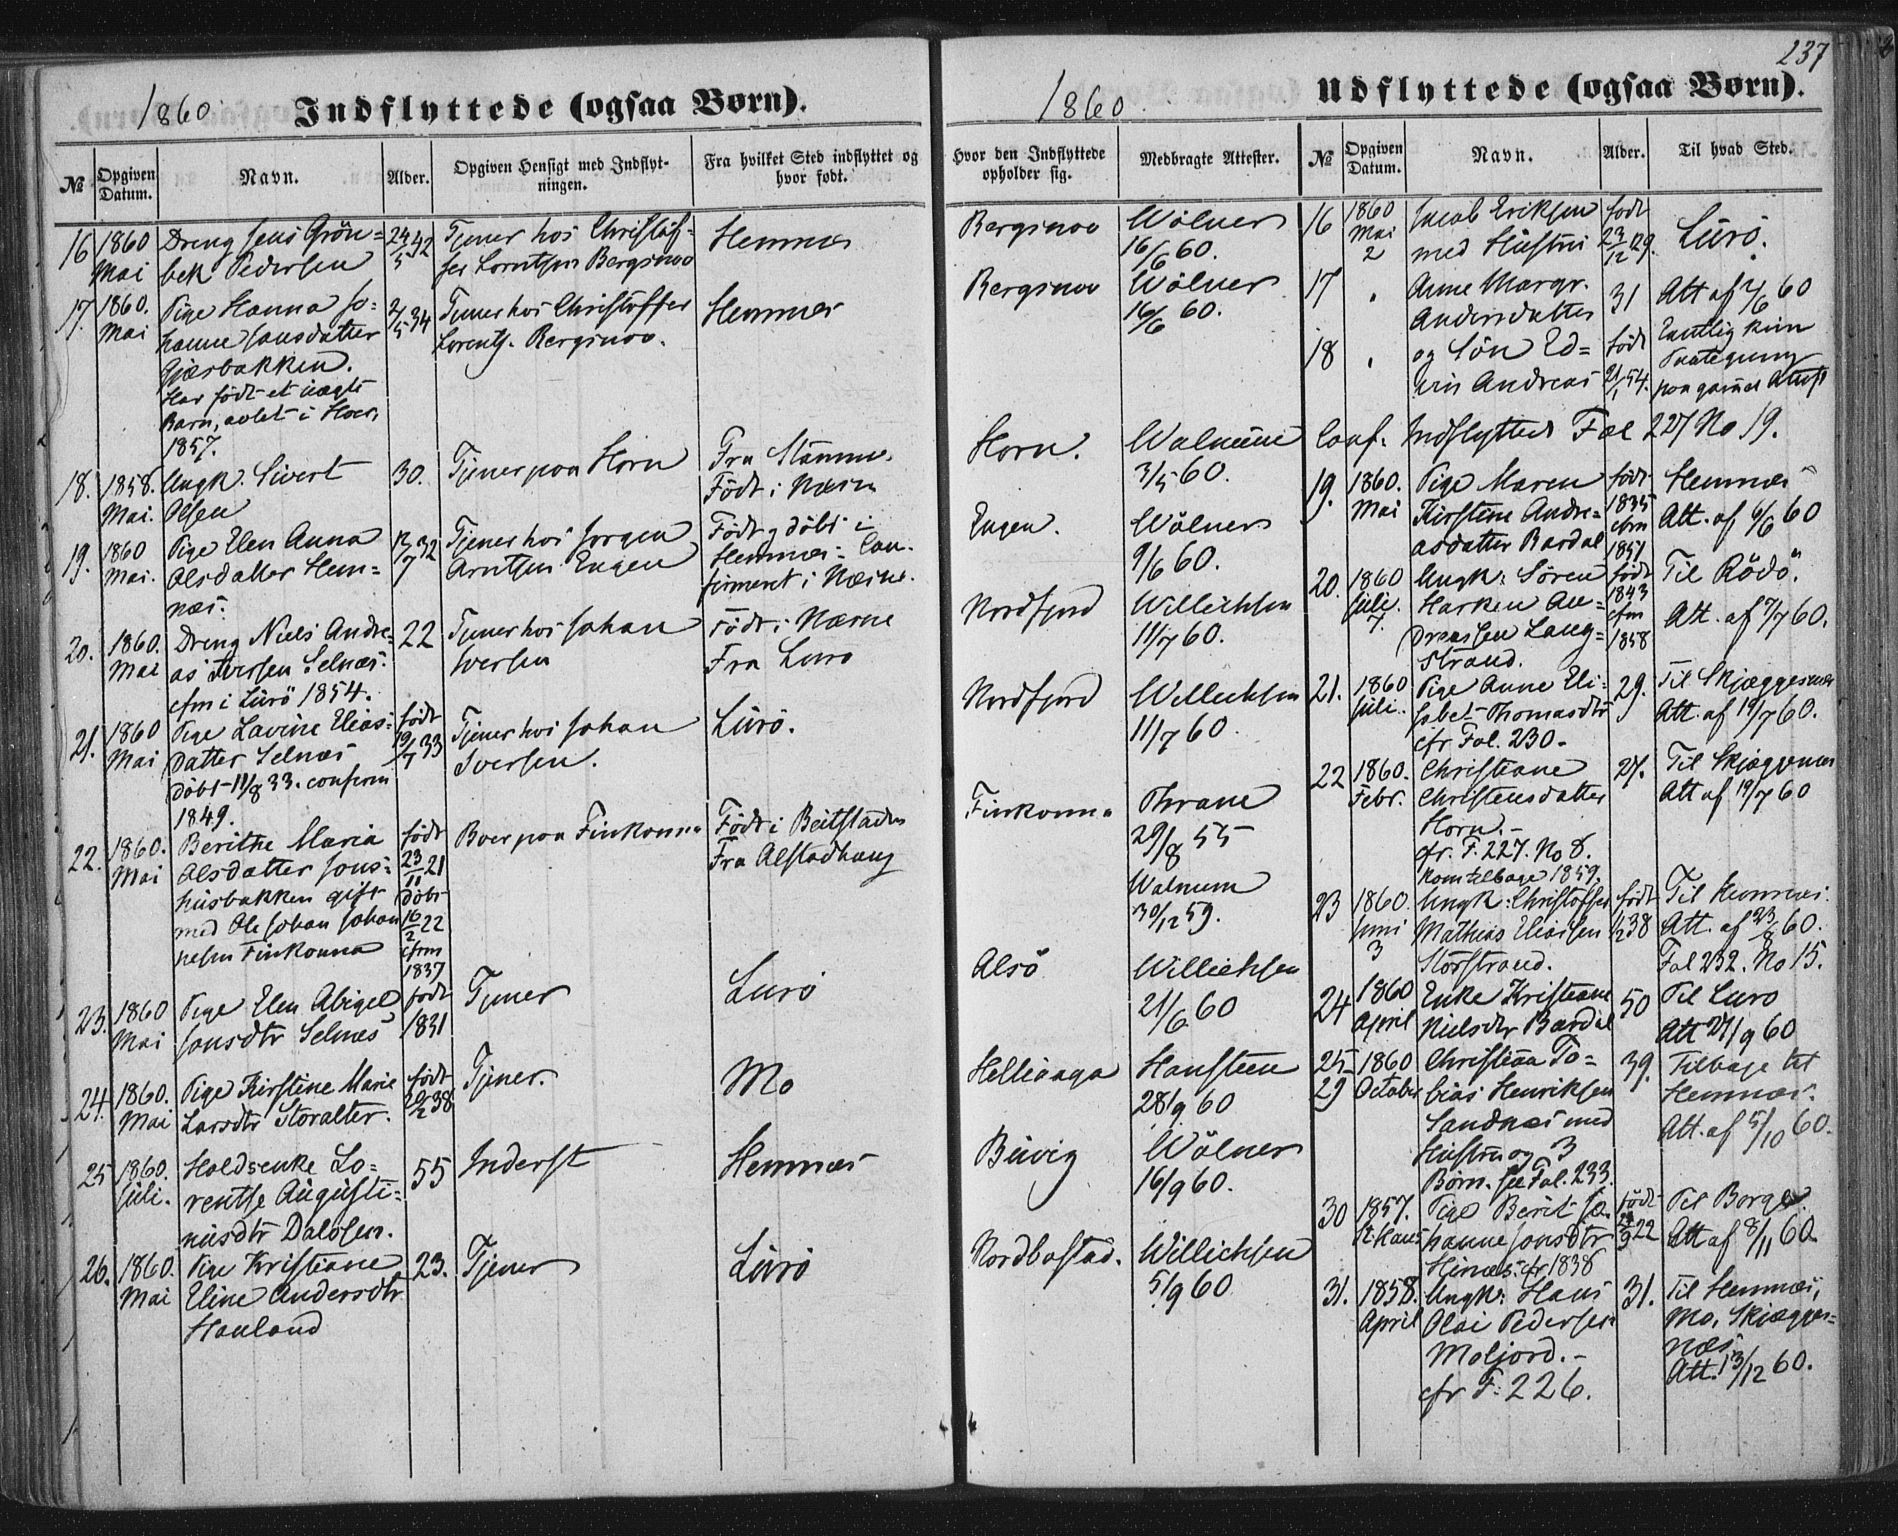 237
1860 Indflyttede (ogsaa Børn).
№ Opgiven Datum. Navn. Alder. Opgiven Hensigt med Indflytningen. Fra hvilket Sted indflyttet og hvor født. Hvor den Indflyttede opholder sig. Medbragte Attester.
16 1860 Mai Dreng Jens Grön=
bek Pedersen 24/5 42 Tjener hos Christof=
fer Lorntsen Bergsnov Hemnes Bergsnov Wölner 16/6 60.
17. 1860. Mai Pige Hanna Jo=
hanne Jonsdatter
Gjærbakken.
Har født et uægte
Barn, avlet i
1857. 2/5 34 Tjener hos Christoffer
Lorents. Bergsnov. Hemnes Bergsnov Wölner 16/6 60.
18. 1858. Mai. Ungk. Sivert
Olsen 30. Tjener paa Horn Fra Stamnes.
Født i Næsne Horn. Walnum 3/5 60.
19. 1860 Mai. Pige Elen Anna
Olsdatter Hem=
næs. 12/7 32 Tjener hos Jorgen
Arntsen Engen Født og döbt i
Hemnæs: Con=
firmeret i Næsne. Engen. Wölner 9/6 60.
20. 1860. Mai Dreng Niels Andre=
as Iversen Selnæs.
cfm i Lürö 1854. 22 Tjener hos Johan
Iversen Født i Næsne
Fra Lurö Nordfjord Willichsen 11/7 60.
21. 1860 Mai Pige Lavine Elias=
datter Selnæs
döbt 11/8 33. confirm
1849. født 19/7 33 Tjener hos Johan
Iversen. Lürö. Nordfjord Willichsen 11/7 60.
22. 1860. Mai Berithe Maria
Olsdatter Jons=
husbakken gift
med Ole Johan Johan
nesen Finkonna født 23/11 21
döbt 16/2 22
cfrm 1837 Boer paa Finkonna Født i Beitstaden
Fra Alstadhaug Finkonna Thrane 29/8 55
Walnum 30/12 59.
23. 1860 Mai Pige Elen Abigel
Jonsdtr Selnæs født 1831 Tjener Lurö Alsö Willichsen 21/6 60
24. 1860. Mai Pige Kirstine Marie
Larsdtr Storalter. født 38 Tjener. Mo Hellaaga Hansteen 28/9 60
25 1860. Juli. Holdsenke Lo=
rentse Augusti=
nusdtr Dalosen. 55 Inderst Hemnæs Büvig Wölner 16/9 60.
26. 1860. Mai Pige Kristiane
Eline Andersdtr
Hauland 23. Tjener Lürö Nordbostad. Willichsen 5/9 60
1860 Udflyttede (ogsaa Børn).
№ Opgiven Datum. Navn. Alder. Til hvad Sted.
16 1860 Mai 2 Jacob Eriksen
med Hustru født 23/12 29. Lürö.
17 " Anne Margr.
Andersdatter 31 Att af 2/6 60
18 " og Sön Ed=
Andreas født 21/1 54.
Paategning
paa gamel Attest
Conf. Indflyttede Fol 227 No 19.
19. 1860. Mai Pige Maren
Kirstine Andre=
asdatter Bardal født 1835
cfrm 1851 Hemnæs
Att. af 6/6 60
20. 1860 Juli. 7. Ungk: Sören
Harken An=
dreassen Lang=
strand. født 1843
cfm 1858 Til Rödö.
Att. af 7/7 60.
21. 1860 Juli. Pige Anne Eli=
sabet Thomasdtr
cfr Fol. 230. 29. Til Skjæggesnæs
Att. af 19/7 60.
22 1860. Febr. Christiane
Christensdatter
Horn.
cfr. F. 227. No 8.
Kom tilbage 1859. 27. Til Skjæggesnæs
Att af 19/7 60
23 1860. Juni 3 Ungk: Christoffer
Mathias Eliassen
Storstrand. født 38 Til Hemnæs.
Att. af 23/8 60.
Fol 232. No 15.
24 1860 April Enke Kristiane
Nielsdtr Bardal 50 Til Lurö
Att 21/9 60
25-29 1860 October Christian To=
bias Henriksen
Sandnæs med
Hustru og 3
Børn. see Fol. 233. 39. Tilbage til
Hemnæs.
Att. af 5/10 60.
30 1857. St Hans Pige Berit Jo=
hanne Jonsdtr
cfr 1838 født 22 Til Borge
Att af 8/11 60.
31. 1858. April Ungk: Hans
Olai Pedersen
Moljord.
cfr F. 226. 31. Til Hemnæs,
Mo, Skjægges=
næs
Att. 13/12 60.